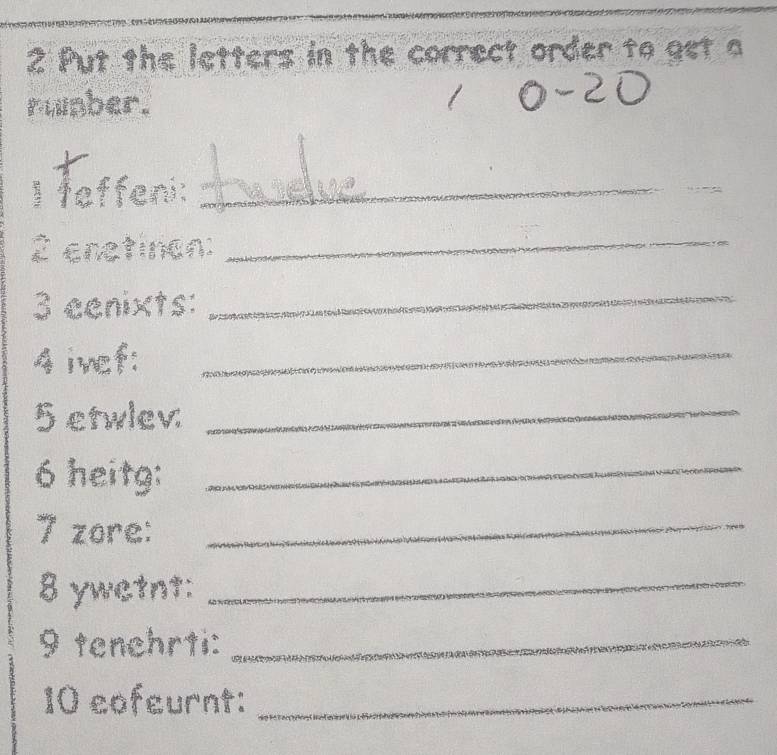 2 Put the letters in the correct order to get a
number.
/ 0-20
1 teffeni: twelve
2 enetinen:
3 eenixts:
4 ivef:
5 etwlev:
6 heitg:
7 zore:
8 ywetnt:
9 tenehrti:
10 eofeurnt: